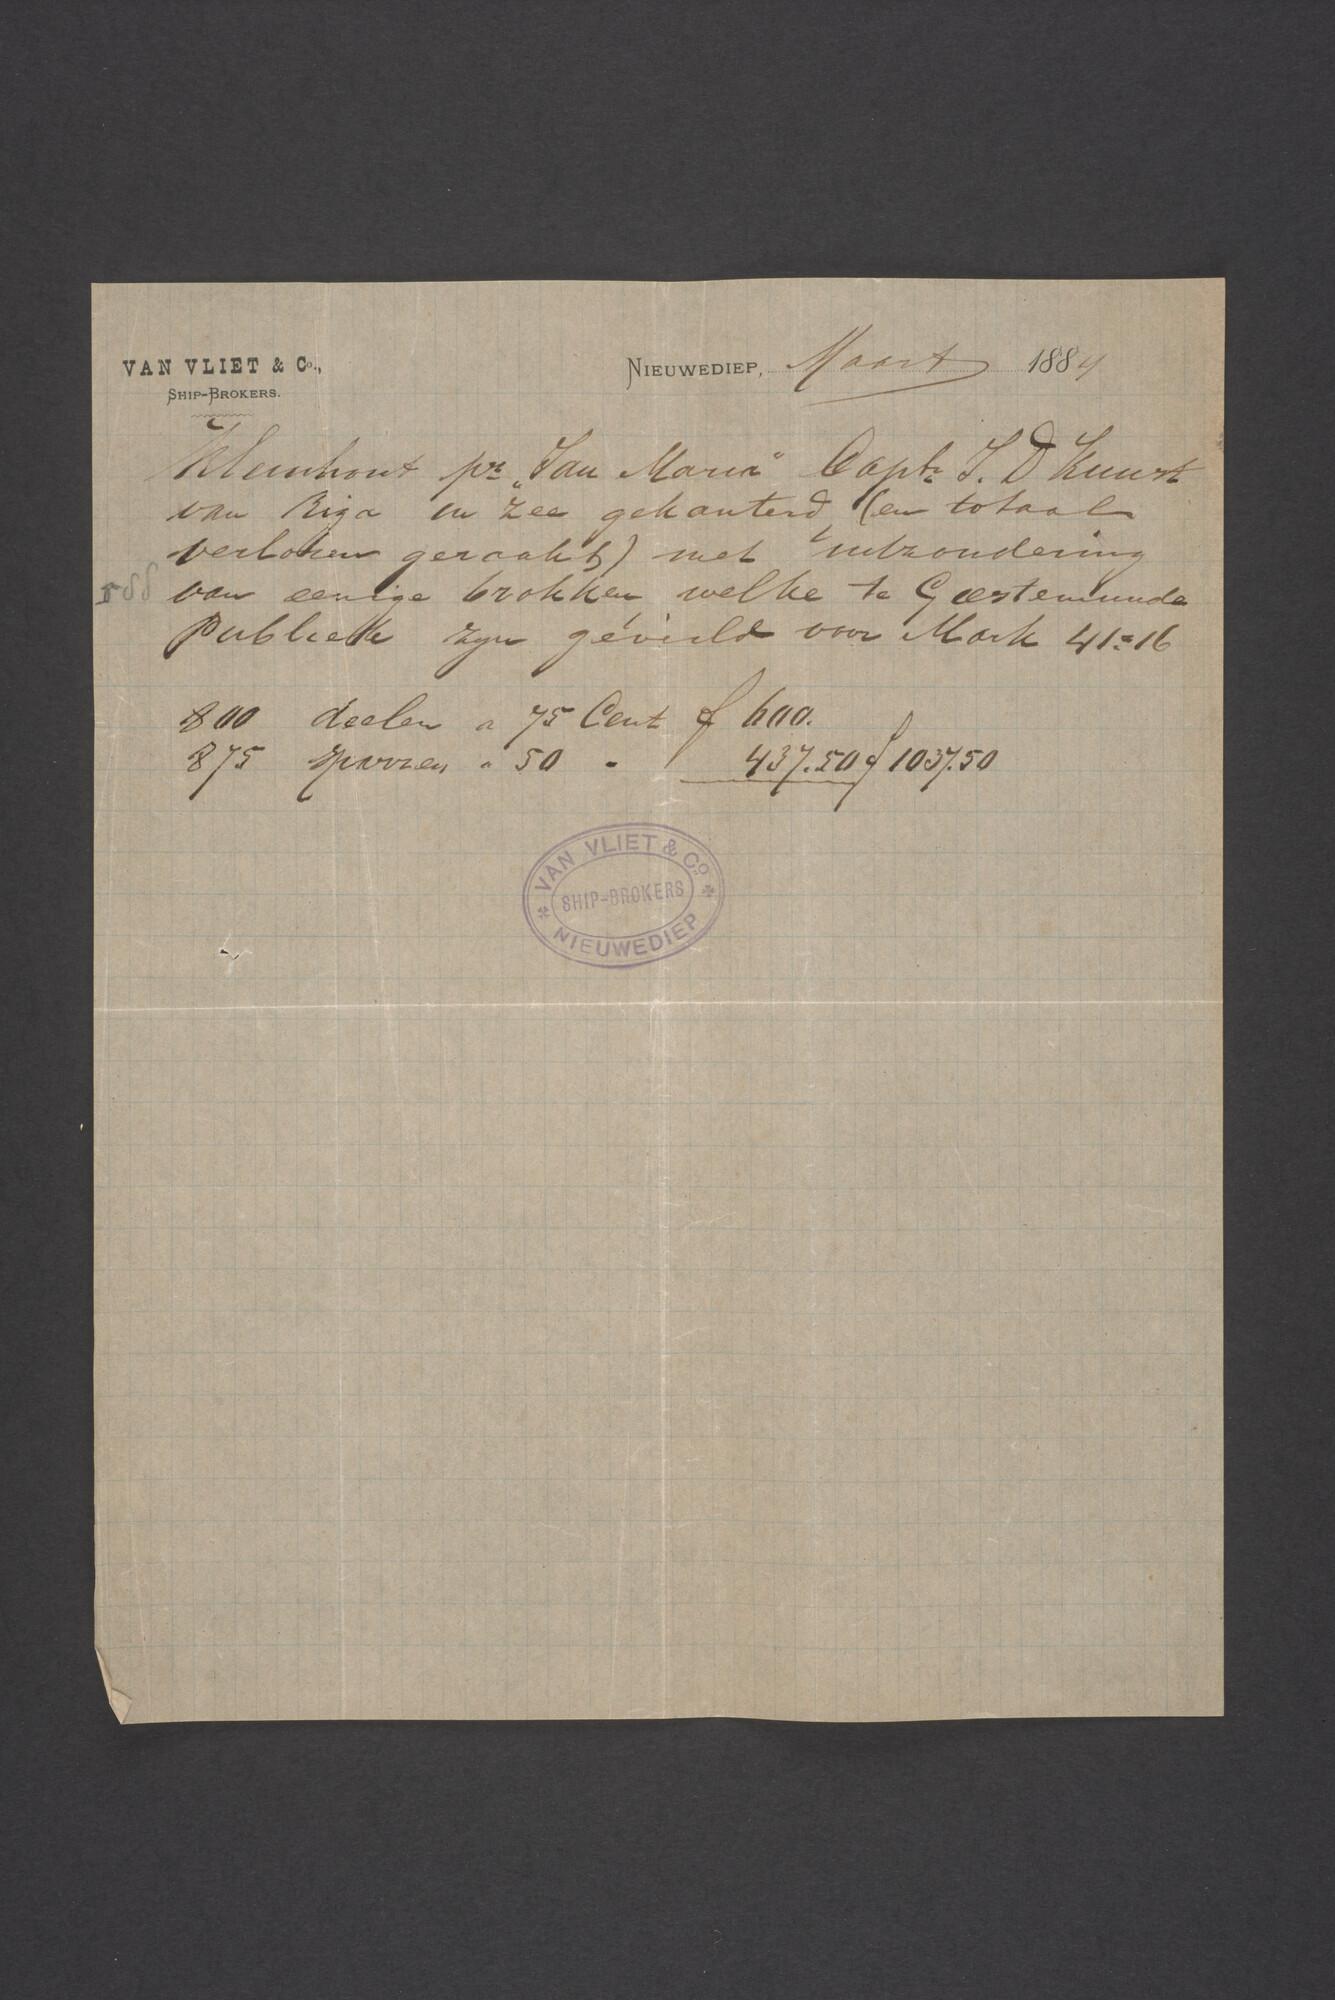 VAN VLIET & Co.,
SHIP-BROKERS.
NIEUWEDIEP, Maart 1884
't Kleinhout pr. „Jan Maria" Captn J. D Kunst
van Riga in zee gekanterd, (en totaal
verloren geraakt) met uitzondering
van eenige brokken welke te Geestemunde
Publiek zijn geveild voor Mark 41=16
800 deelen a 75 Cent f 600.
875 sparren " 50 " 437.50 f 1037.50
VAN VLIET & Co.
SHIP-BROKERS
NIEUWEDIEP